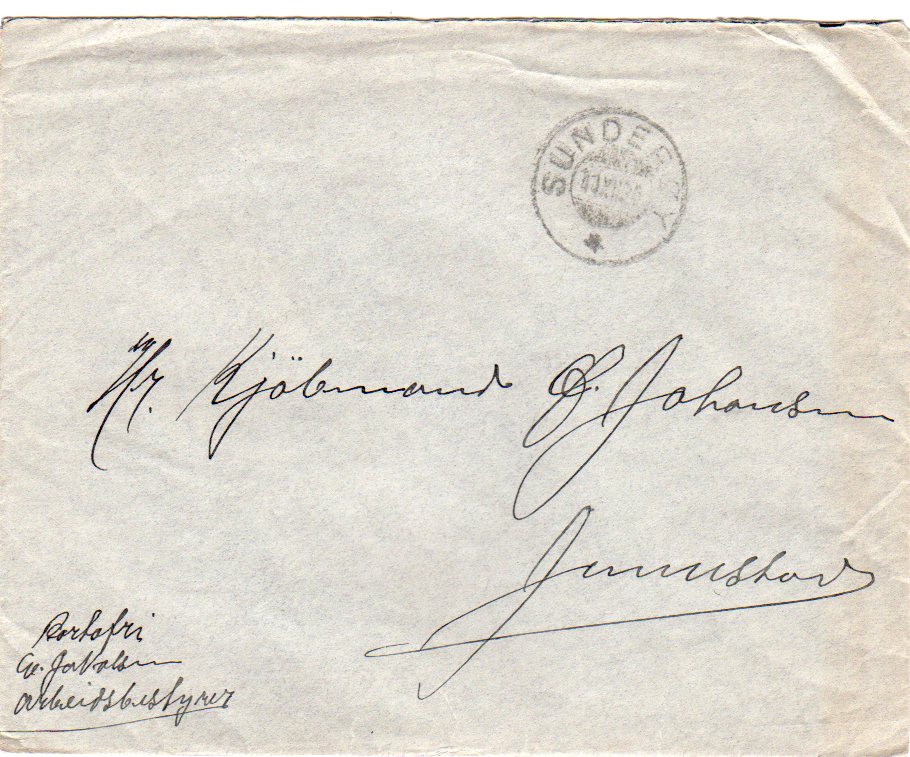 Hr. Kjöbmand Johansen
Jennestad
Portofri
Jakobsen
Arbeidsbestyrer